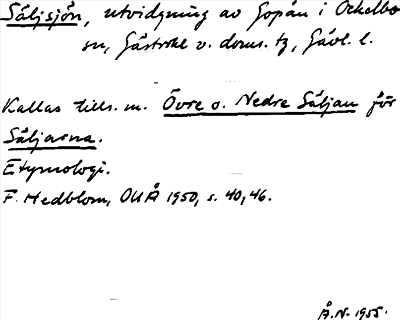 Säljsjön, utvidgning av Gopån i Ockelbo
sn, Gästrikl v. doms. tg, Gävl. l.
Kallas tills. m. Övre o. Nedre Säljan för
Säljarna.
Etymologi.
F. Hedblom, OUÅ 1950, s. 40, 46.
Å. N. 1955.